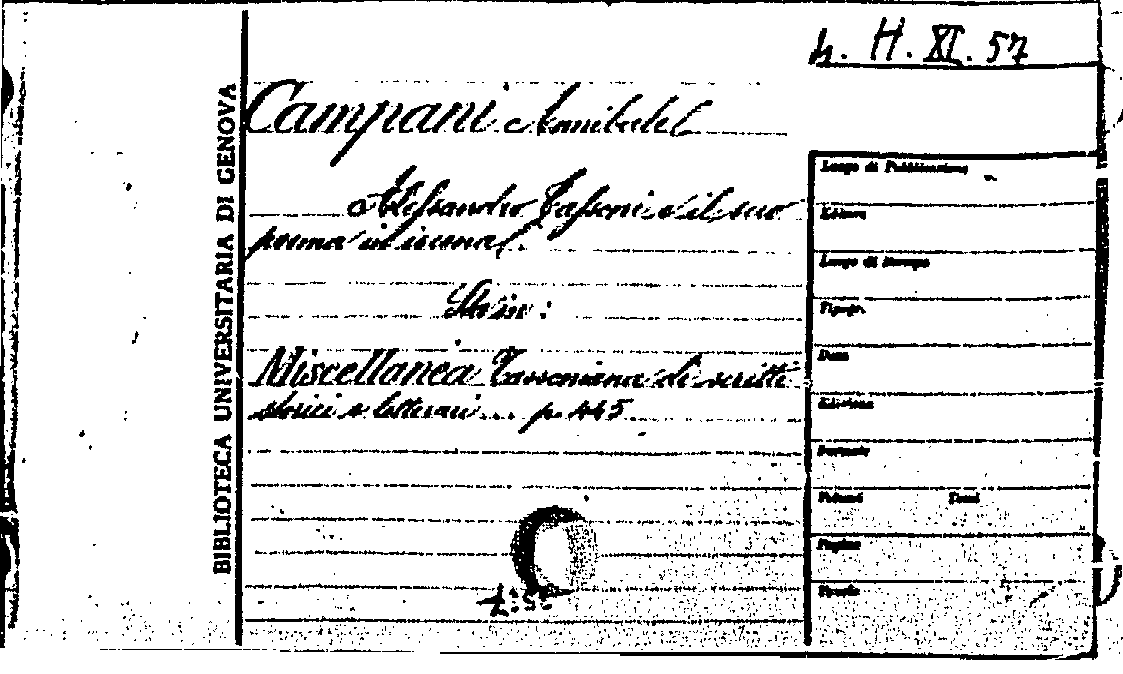 4. H. XI. 57
BIBLIOTECA UNIVERSITARIA DI GENOVA
Campani Annibale
Alessandro Tassoni e il suo
poema
Sta in:
Miscellanea Tassoniana di scritti
storici e letterari... p. 445
Luogo di Pubblicazione
Editore
Luogo di Stampa
Tipogr.
Data
Edizione
Formato
Volumi Tomi
Pagine
Tavole